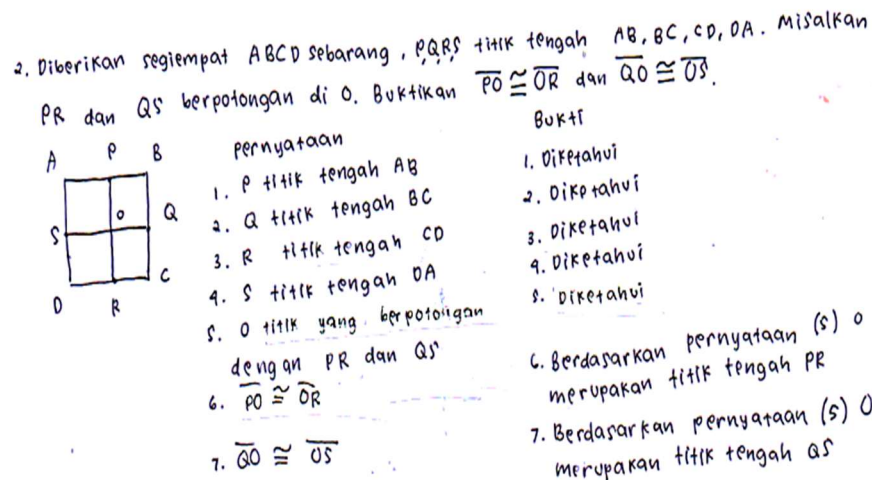 2. Diberikan segiempat ABCD sebarang, P,Q,R,S titik tengah AB, BC, CD, DA. Misalkan
PR dan QS berpotongan di O. Buktikan PO ≅ OR dan QO ≅ OS.
A P B
S O Q
D R C
Pernyataan
1. P titik tengah AB
2. Q titik tengah BC
3. R titik tengah CD
4. S titik tengah DA
5. O titik yang berpotongan
dengan PR dan QS
6. PO ≅ OR
7. QO ≅ OS
Bukti
1. Diketahui
2. Diketahui
3. Diketahui
4. Diketahui
5. Diketahui
6. Berdasarkan pernyataan (5) O
merupakan titik tengah PR
7. Berdasarkan pernyataan (5) O
merupakan titik tengah QS